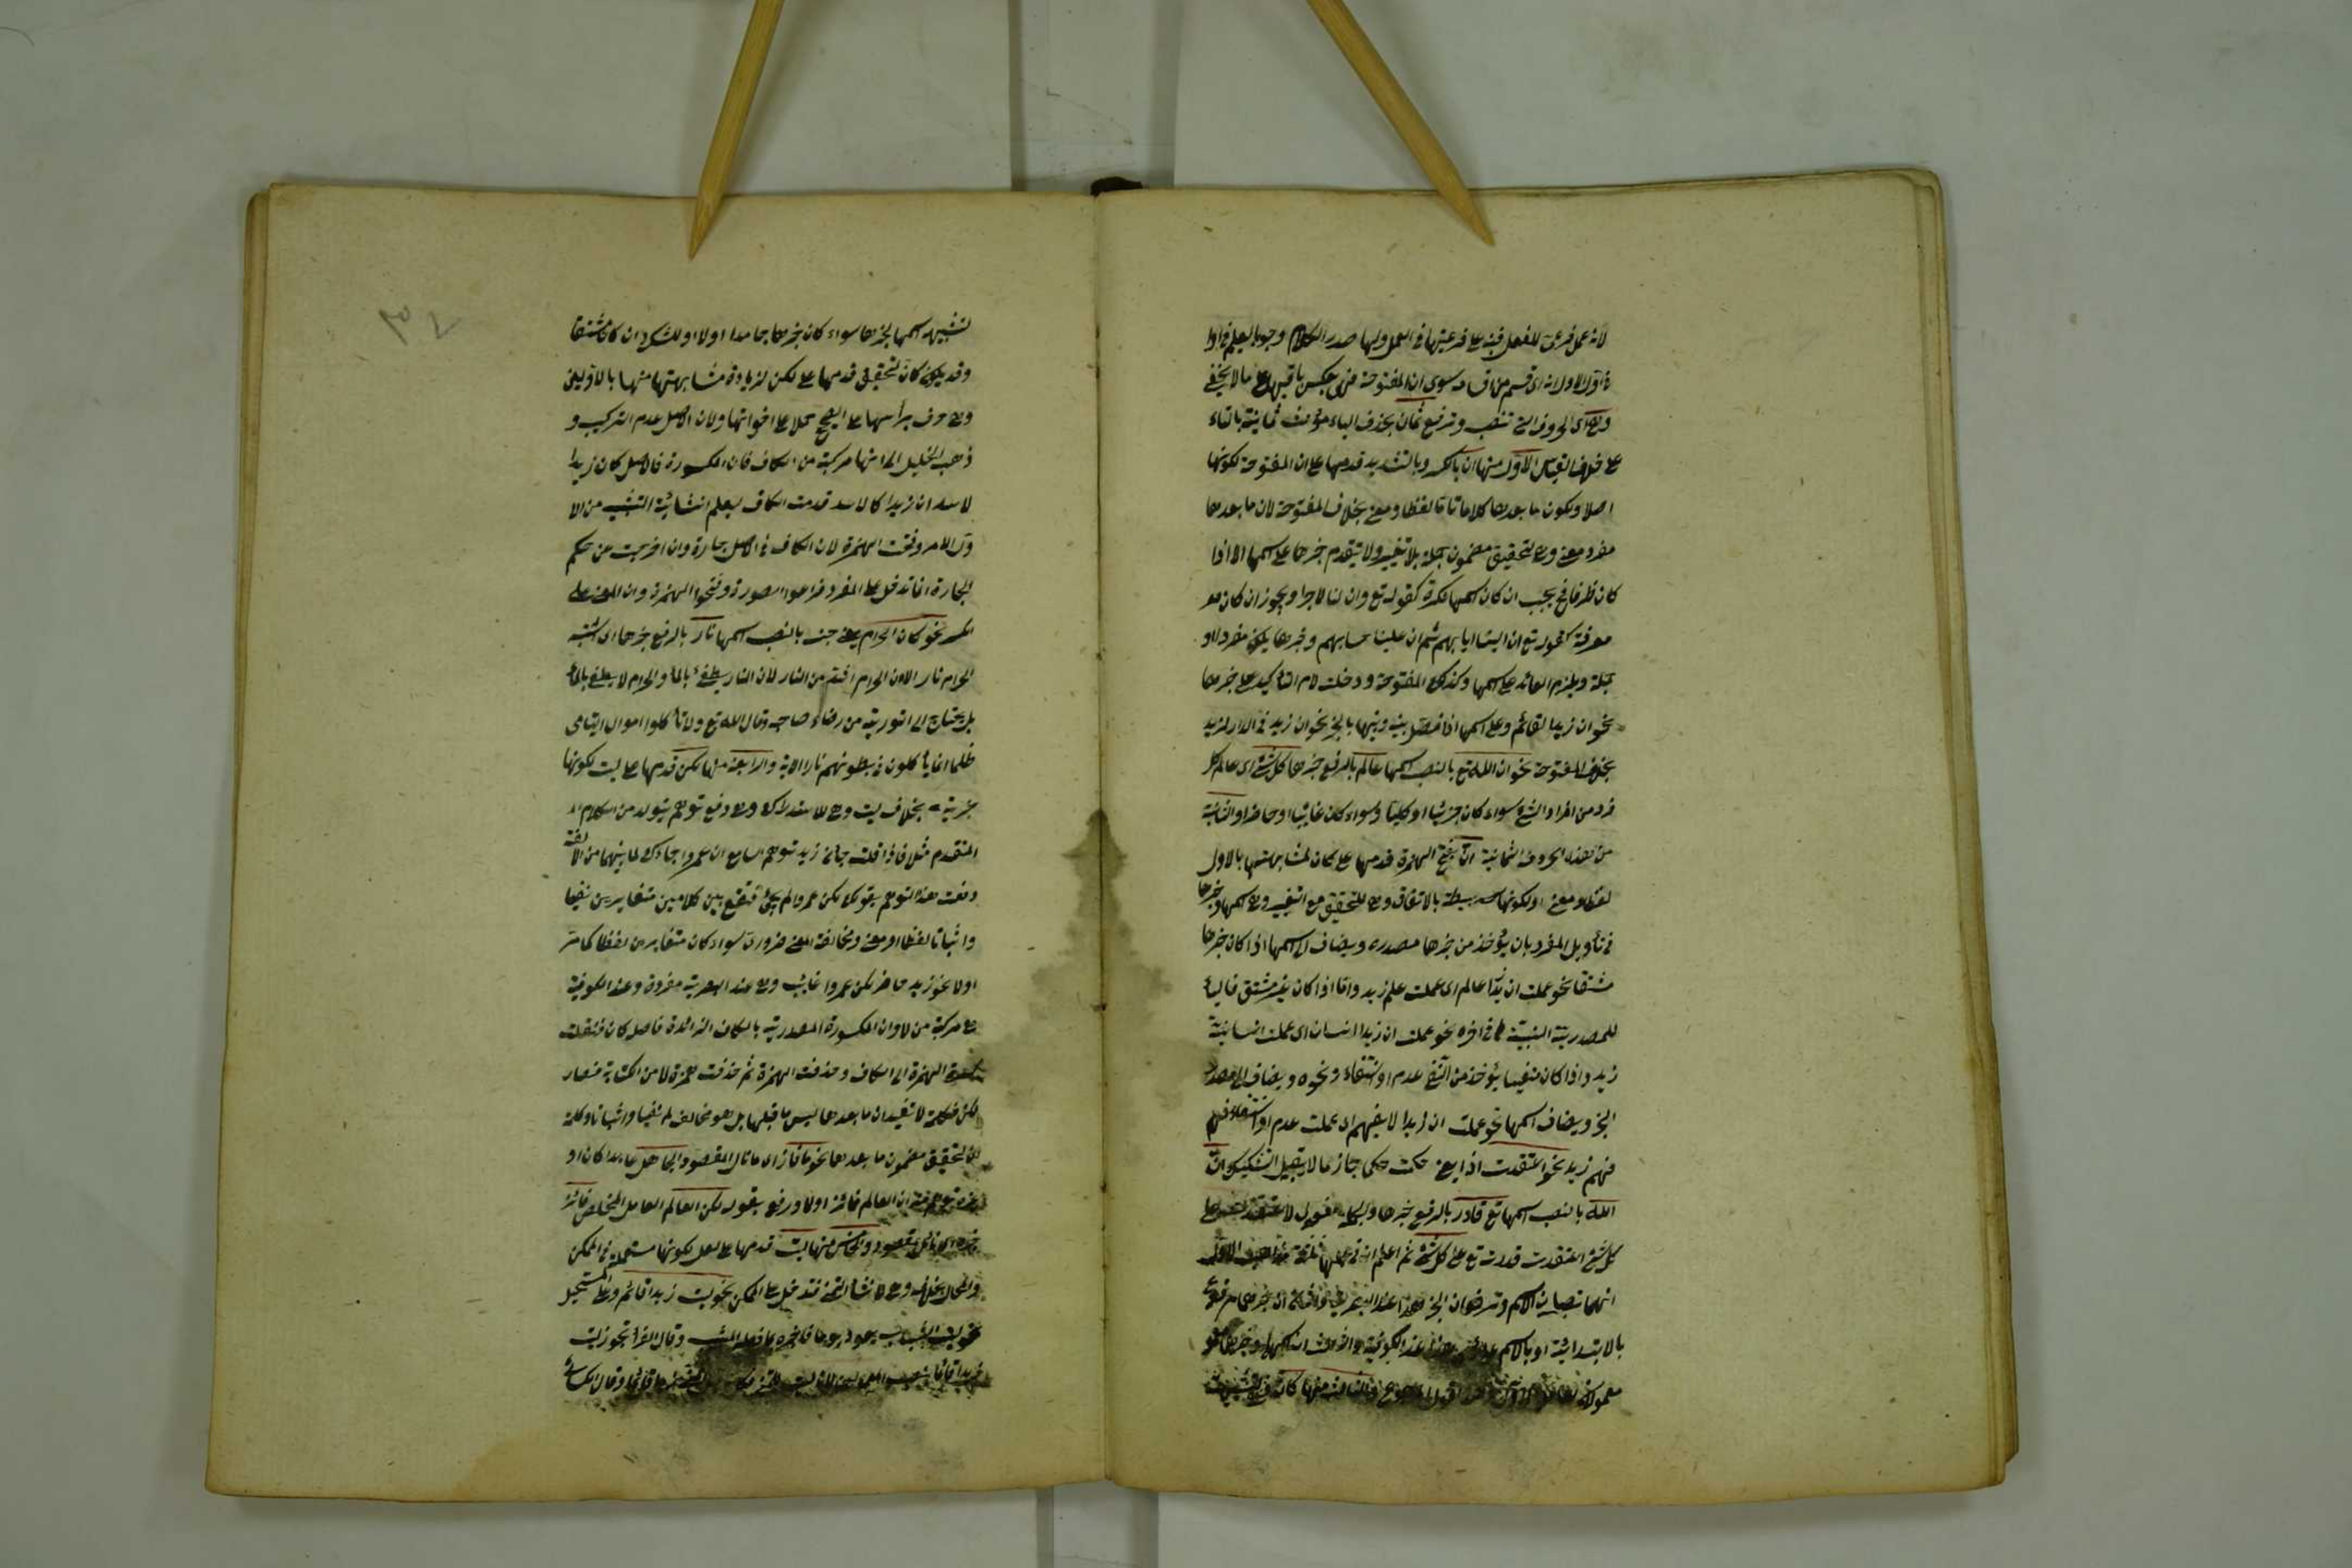 لانه عمل فرعى للفعل فنبه على فرعيتها فى العمل ولها صدر الكلام وجوبا ليعلم فى اول
الاولانه اى قسم من اقسامه سوى ان المفتوحة فهى بعكس باقيها على ما لا يخفى
وهى اى الحروف التى تنصب وترفع ثمان بحذف الياء مؤنث ثمانية بالتاء
على خلاف القياس الاول منها ان بالكسر وبالتشديد قدمها على ان المفتوحة لكونها
اصلا ولكون ما بعدها كلاما تاما لفظا ومعنى بخلاف المفتوحة لان ما بعدها
مفرد معنى وهى لتحقيق مضمون جملة بلا تغيير ولا يتقدم خبرها على اسمها الا اذا
كان ظرفا فح يجب ان كان اسمها نكرة كقوله تع وان لنا لاجرا ويجوز ان كان
معرفة كقوله تع ان الينا ايابهم ثم ان علينا حسابهم وخبرها يكون مفردا او
جملة ويلزم العائد على اسمها وكذلك المفتوحة ودخلت لام التأكيد على خبرها
نحو ان زيدا لقائم وعلى اسمها اذا فصل بينه وبينها بالخبر نحو ان زيد فى الدار لزيد
بخلاف المفتوحة نحو ان الله تع بالنصب اسمها عالم بالرفع خبرها كل شئ اى عالم كل
فرد من افراد الشئ سواء كان جزئيا او كليا وسواء كان غائبا او حاضرا والثانية
من هذه الحروف الثمانية ان بفتح الهمزة قدمها على كان لمشابهتها بالاول
لفظا ومعنى او لكونها بسيطة بالاتفاق وهى للتحقيق مع التغيير وهى اسمها وخبرها
فى تأويل المفرد بان يؤخذ من خبرها مصدره ويضاف الى اسمها اذا كان خبرها
مشتقا نحو علمت ان زيدا عالم اى علمت علم زيد واما اذا كان غير مشتق فالياء
للمصدرية النسبية فى اخره نحو علمت ان زيدا انسان اى علمت انسانية
زيد واذا كان منفيا يؤخذ من النفى عدم او انتفاء ونحوه ويضاف الى مصدر
الخبر ويضاف اسمها نحو علمت ان زيدا لا يفهم اى علمت عدم او انتفاء فهم
فهم زيد نحو اعتقدت اذا يعنى حكمت حكما جازما لا يقبل التشكيك ان
الله بالنصب اسمها تع قادر بالرفع خبرها والجملة مفعول لاعتقدت على
كل شئ اعتقدت قدرت تع على كل شئ ثم اعلم ان فى عملها ثلثة مذاهب الاول
انهما تنصبان الاسم وترفعان الخبر هذا عند البصريين والثانى ان خبرها مرفوع
بالابتدائية او بالاسم عند الكوفية والثالث ان اسمها وخبرها
معمولان والثالث منها كان فى التشبيه
لتشبيه اسمها بخبرها سواء كان خبرها جامدا اولا او للشك ان كان مشتقا
وقد يكون كان لتحقيق قدمها على لكن لزيادة مشابهتها منها بالاوليين
وهى حرف برأسها على الصحيح حملا على اخواتها ولان الاصل عدم التركيب و
ذهب الخليل الى انها مركبة من الكاف فان المكسورة فالاصل كان زيدا
لاسد ان زيدا كالاسد قدمت الكاف ليعلم انشائية التشبيه من الا
ول الامر وفتحت الهمزة لان الكاف فى الاصل جارة وان اخرجت عن حكم
الجارة انما تدخل على المفرد فراعوا الصورة وفتحوا الهمزة وان المعنى على
الكسر نحو كان الحرام يعنى جنسه بالنصب اسمها نار بالرفع خبرها اى اشبه
الحرام نار الا ان الحرام اشد من النار لان النار يطفئ بالماء والحرام لا يطفئ بالماء
بل يحتاج الى التوربة من رضاء صاحبه وقال الله تع ولا تأكلوا اموال اليتامى
ظلما انما يأكلون فى بطونهم نارا الاية والرابعة منها لكن قدمها على ليت لكونها
خبرية بخلاف ليت وهى للاستدراك وهى دفع توهم يتولد من الكلام
المتقدم مثلا فاذا قلت جائنى زيد توهم السامع ان عمروا جاءك لما بينهما من الالفة
دفعت هذا التوهم بقولك لكن عمروا لم يجئ فتقع بين كلامين متغايرين نفيا
واثباتا لفظا او معنى ومخالفة المعنى ضرورى سواء كان متغايرين لفظا كما مر
اولا نحو زيد حاضر لكن عمروا غائب وهى عند البصرية مفردة وعند الكوفية
هى مركبة من لا وان المكسورة المصدرية بالكاف الزائدة فاصله كان فنقلت
كسرة الهمزة الى الكاف وحذفت الهمزة ثم حذفت همزة لا من الكتابة فصار
لكن فكلمة لا تفيد ان ما بعدها ليس ما قبلها بل هو مخالف له نفيا واثباتا وكلمة
ان لتحقيق مضمون ما بعدها نحو ما فاز اى ما نال المقصود الجاهل عابدا كان او
غيره توهم منه ان العالم فائز اولا ورفع بقوله لكن العالم العامل المخلص فائز
خبره اى نائل مقصود والخامس منها ليت قدمها على لعل لكونها مستعملة فى الممكن
والمحال بخلافه وهى لانشاء التمنى فتدخل على الممكن نحو ليت زيدا قائم وعلى المستحيل
نحو ليت الشباب يعود يوما فاخبره بما فعل المشيب وقال الفراء تجوز ليت
زيدا قائما وقال الكسائى